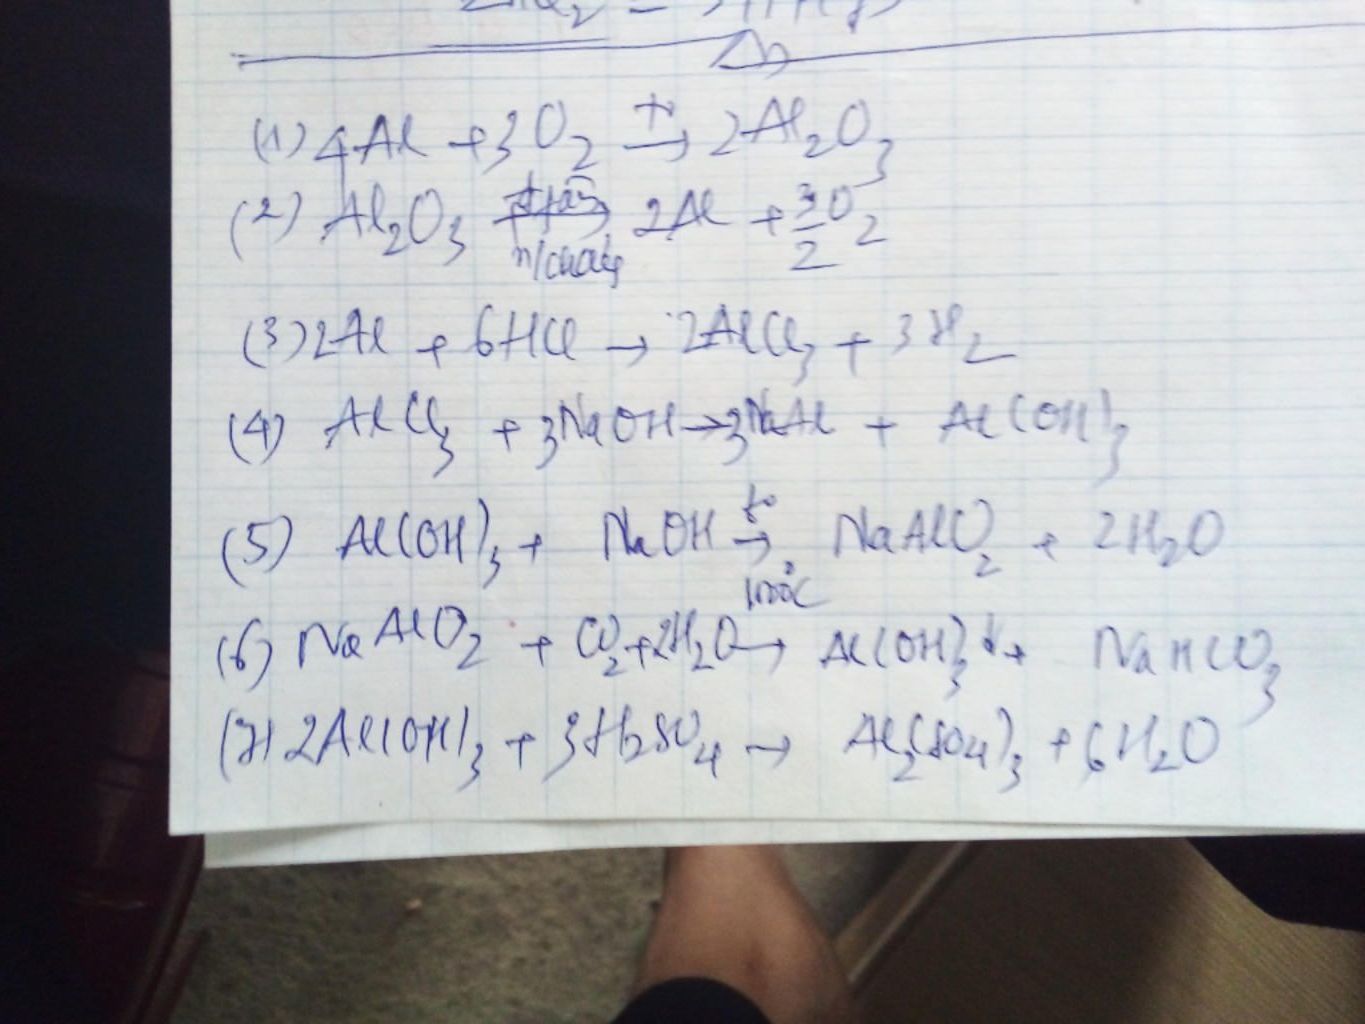 (1) 4Al + 3O₂ →(t°) 2Al₂O₃
(2) Al₂O₃ →(đpnc) 2Al + 3/2 O₂
(3) 2Al + 6HCl → 2AlCl₃ + 3H₂
(4) AlCl₃ + 3NaOH → 3NaAl + Al(OH)₃
(5) Al(OH)₃ + NaOH →(t°, 100°C) NaAlO₂ + 2H₂O
(6) NaAlO₂ + CO₂ + 2H₂O → Al(OH)₃↓ + NaHCO₃
(7) 2Al(OH)₃ + 3H₂SO₄ → Al₂(SO₄)₃ + 6H₂O